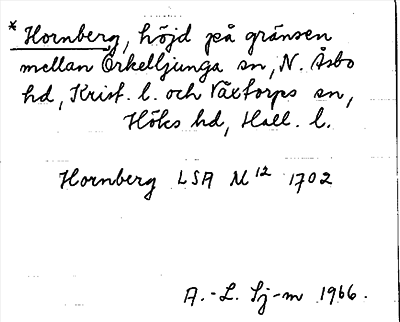 * Hornberg, höjd på gränsen
mellan Örkelljunga sn, N. Åsbo
hd, Krist. l. och Växtorps sn,
Höks hd, Hall. l.
Hornberg LSA M 12 1702
A.-L. Sj-m 1966.